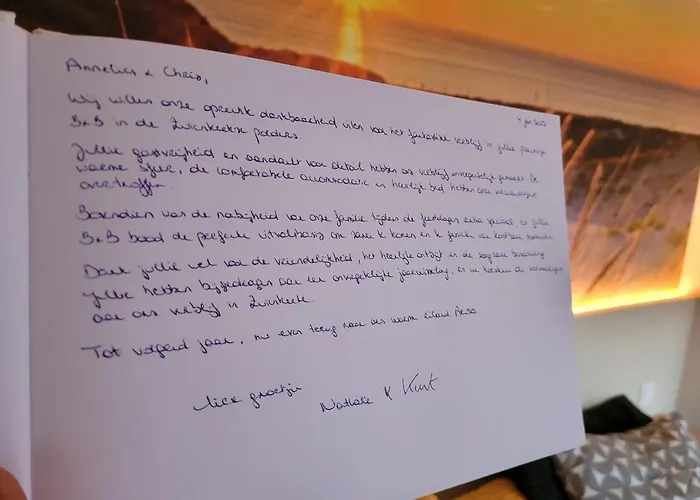 Annelies & Chris,
4 jan 2023
Wij willen onze oprechte dankbaarheid uiten voor het fantastische verblijf in jullie prachtige
B&B in de Zwinkeetse polders.
Jullie gastvrijheid en aandacht voor detail hebben ons verblijf onvergetelijk gemaakt. De
warme sfeer, de comfortabele accommodatie en heerlijk bed hebben onze verwachtingen
overtroffen.
Bovendien was de nabijheid van onze familie tijdens de feestdagen extra speciaal, en jullie
B&B bood de perfecte uitvalsbasis om samen te komen en te genieten van kostbare
Dank jullie wel voor de vriendelijkheid, het heerlijke ontbijt en de
Jullie hebben bijgedragen aan een onvergetelijke jaarwisseling, en we koesteren de herinneringen
aan ons verblijf in
Tot volgend jaar, nu even terug naar ons warm eiland
Lieve groetjes
Nathalie & Kurt